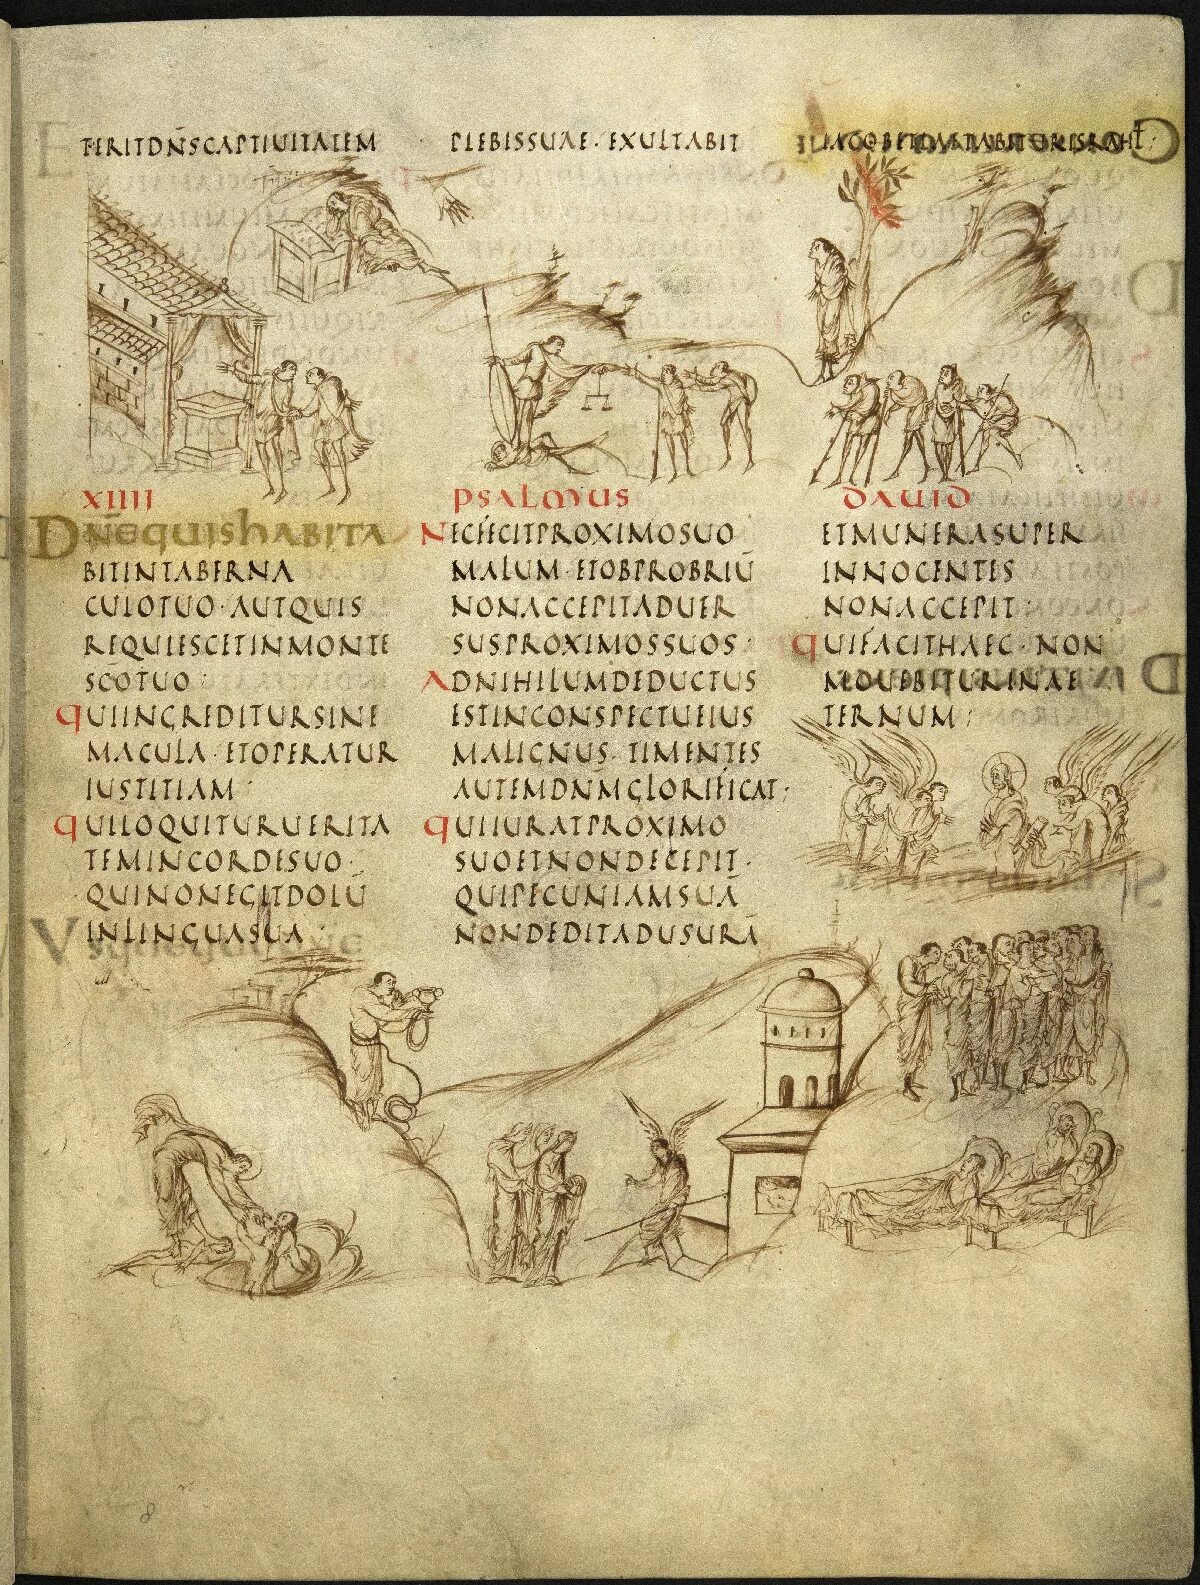 TERITDN̄SCAPTIUITATEM PLEBISSUAE · EXULTABIT IACOBETLAETABITURISRAHĒL ·
XIIII PSALMUS DAUID
DN̄EQUISHABITA
BITINTABERNA
CULOTUO · AUTQUIS
REQUIESCETINMONTE
SC̄OTUO ·
QUIINGREDITURSINE
MACULA · ETOPERATUR
IUSTITIAM ·
QUILOQUITURUERITA
TEMINCORDESUO ·
QUINONEGITDOLŪ
INLINGUASUA ·
NECFECITPROXIMOSUO
MALUM · ETOBPROBRIŪ
NONACCEPITADUER
SUSPROXIMOSSUOS ·
ADNIHILUMDEDUCTUS
ESTINCONSPECTUEIUS
MALIGNUS · TIMENTES
AUTEMDN̄MGLORIFICAT ·
QUIIURATPROXIMO
SUOETNONDECEPIT ·
QUIPECUNIAMSUĀ
NONDEDITADUSURĀ
ETMUNERASUPER
INNOCENTES
NONACCEPIT ·
QUIFACITHAEC · NON
MOUEBITURINAE
TERNUM ·
8